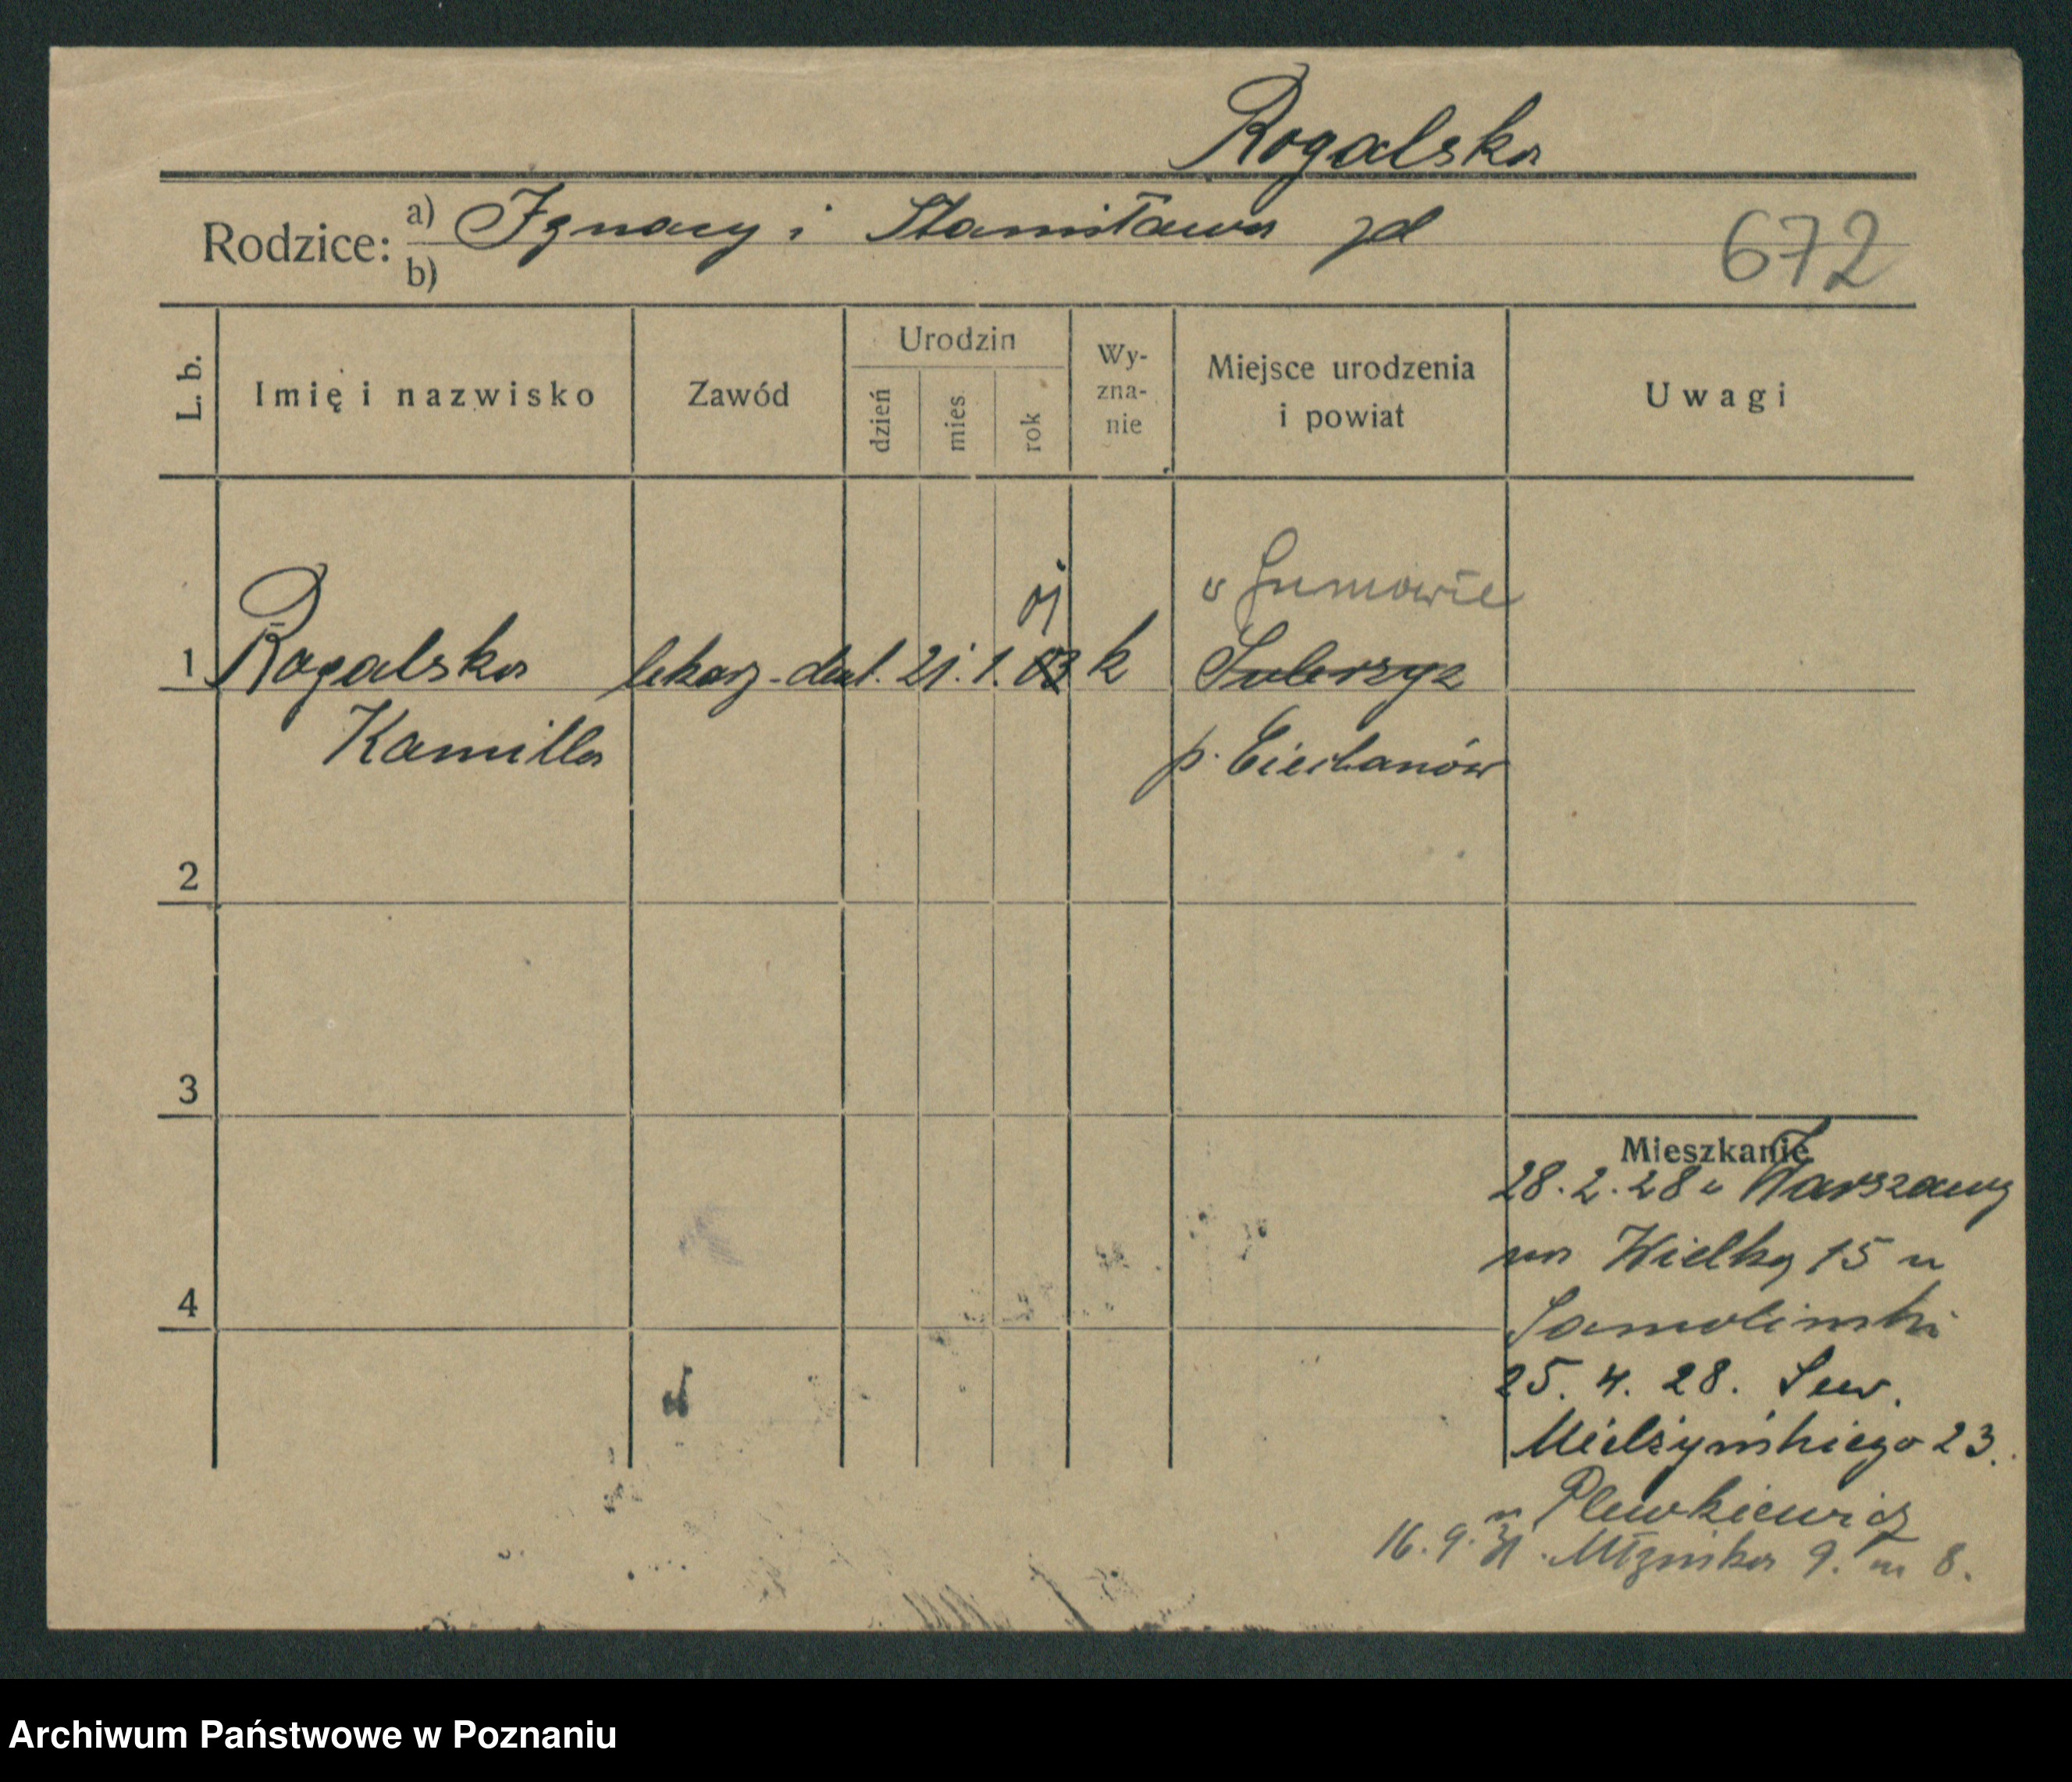 Rogalska
Rodzice: a) Ignacy i Stanisława zd
b)
672
L. b.
Imię i nazwisko
Zawód
Urodzin
dzień
mies.
rok
Wy-
zna-
nie
Miejsce urodzenia
i powiat
Uwagi
1 Rogalska lekarz-dent. 21. 1. 03 k
Kamilla
p. Ciechanów
2
3
4
Mieszkanie
28.2.28 z Warszawy
na Wielką 15 u
Samolinski
25. 4. 28. Sew.
Mielżyńskiego 23.
u Plewkiewicz
16. 9. 31. Młyńska 9. m 8.
Archiwum Państwowe w Poznaniu